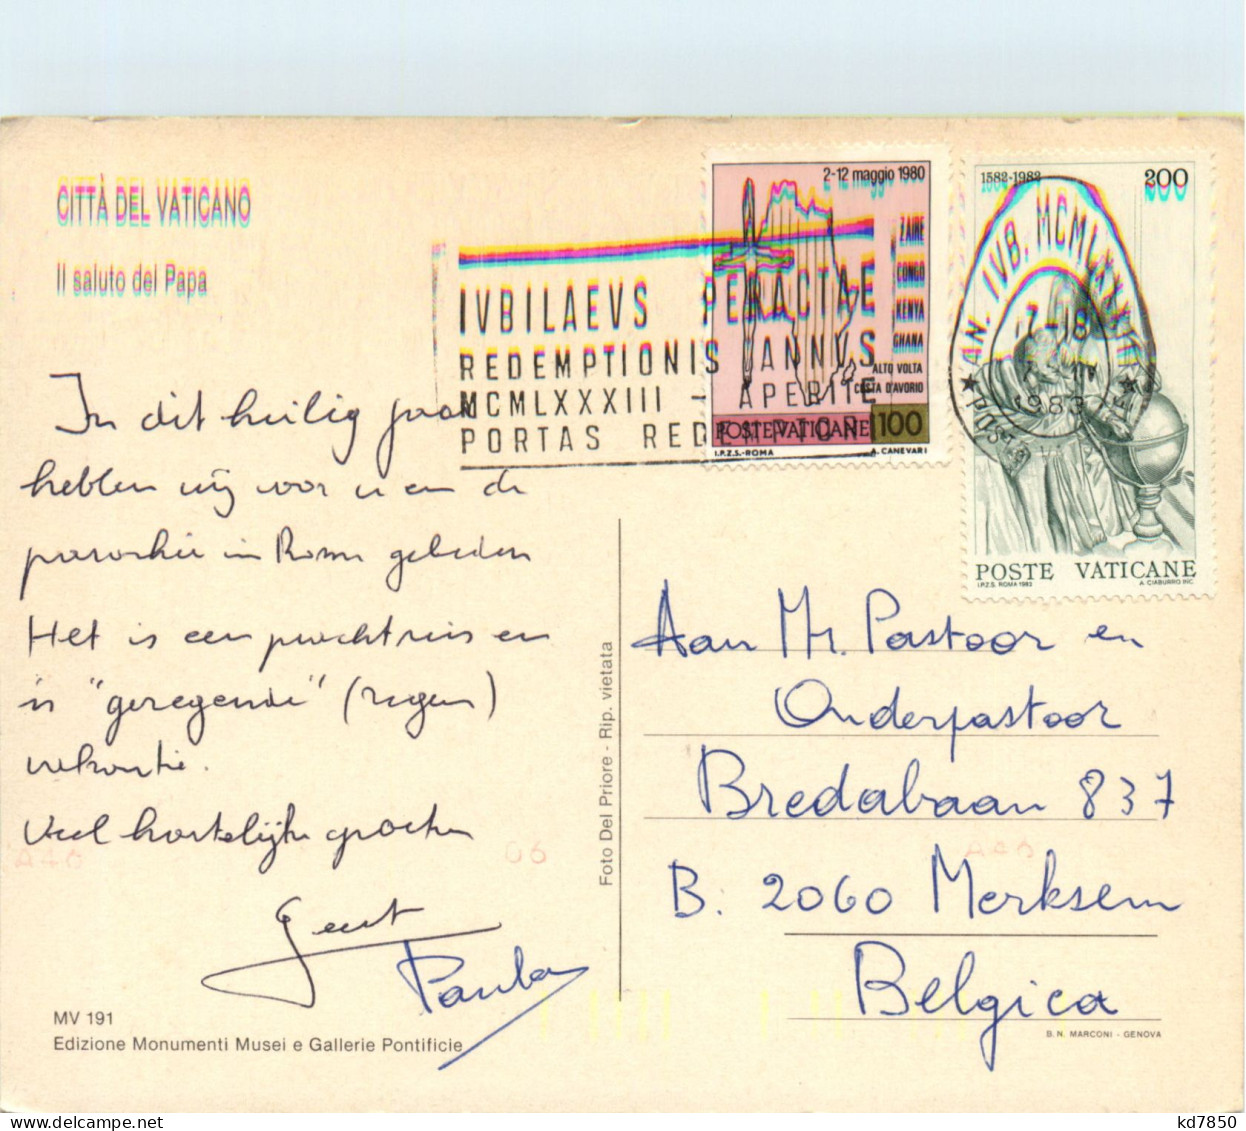 CITTÀ DEL VATICANO
Il saluto del Papa
In dit heilig jaar
hebben wij voor u en de
parochie in Rome gebeden
Het is een prachtreis en
is "geregende" (regen)
vakantie.
Veel hartelijke groeten
Geert
Paula
MV 191
Edizione Monumenti Musei e Gallerie Pontificie
Foto Del Priore - Rip. vietata
IVBILAEVS PERACTAE
REDEMPTIONIS ANNVS
MCMLXXXIII - APERITE
PORTAS REDEMPTORI
2-12 maggio 1980
ZAIRE
CONGO
KENYA
GHANA
ALTO VOLTA
COSTA D'AVORIO
POSTE VATICANE 100
I.P.Z.S.-ROMA A. CANEVARI
1582-1982 200
AN. IVB. MCMLXXXIII
17-18
1983
POSTE VATICANE
I.P.Z.S. ROMA 1982 A. CIABURRO INC.
Aan Mr. Pastoor en
Onderpastoor
Bredabaan 837
B. 2060 Merksem
Belgica
B. N. MARCONI - GENOVA
A46
06
A46
kd7850